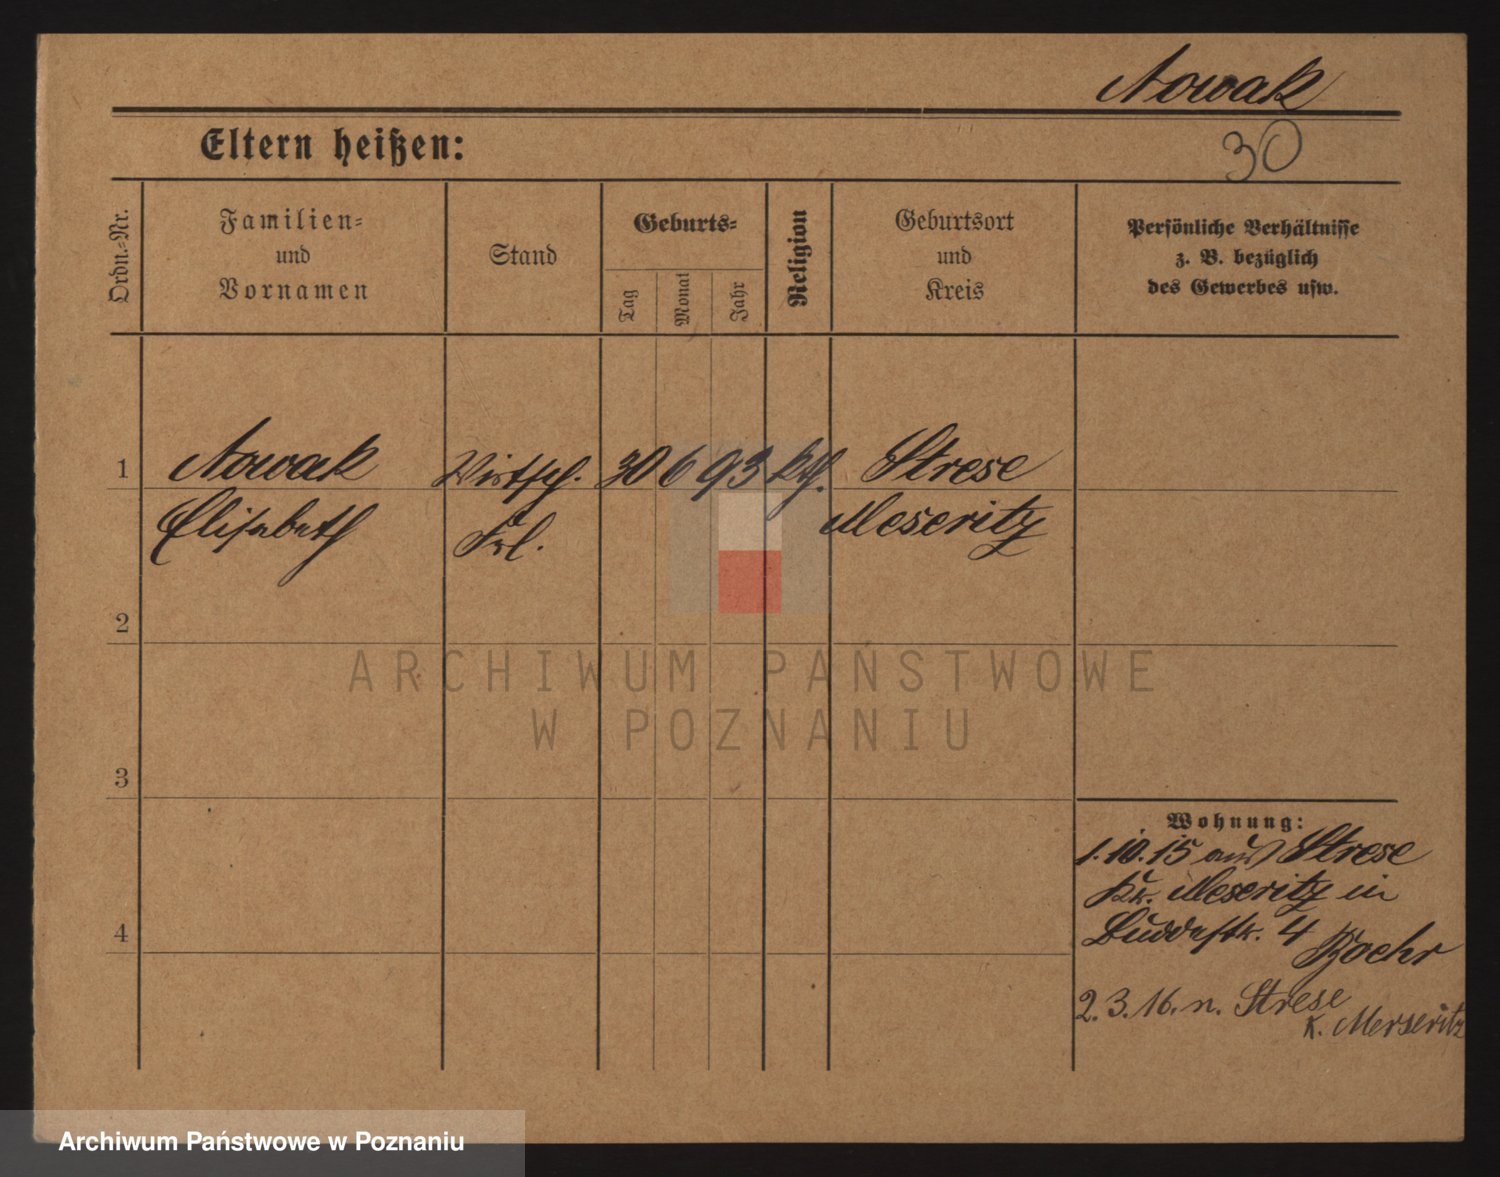 Nowak
Eltern heißen:
30
Ordn.-Nr.
Familien-
und
Vornamen
Stand
Geburts-
Tag
Monat
Jahr
Religion
Geburtsort
und
Kreis
Persönliche Verhältnisse
z. B. bezüglich
des Gewerbes usw.
1 Nowak Wirtsch. 30 6 93 kth. Strese
Elisabeth Frl. Meseritz
2
ARCHIWUM PAŃSTWOWE
W POZNANIU
3
Wohnung:
1.10.15 aus Strese
Kr. Meseritz in
4 Buddestr. 4 Boehr
2.3.16. n. Strese
K. Merseritz
Archiwum Państwowe w Poznaniu